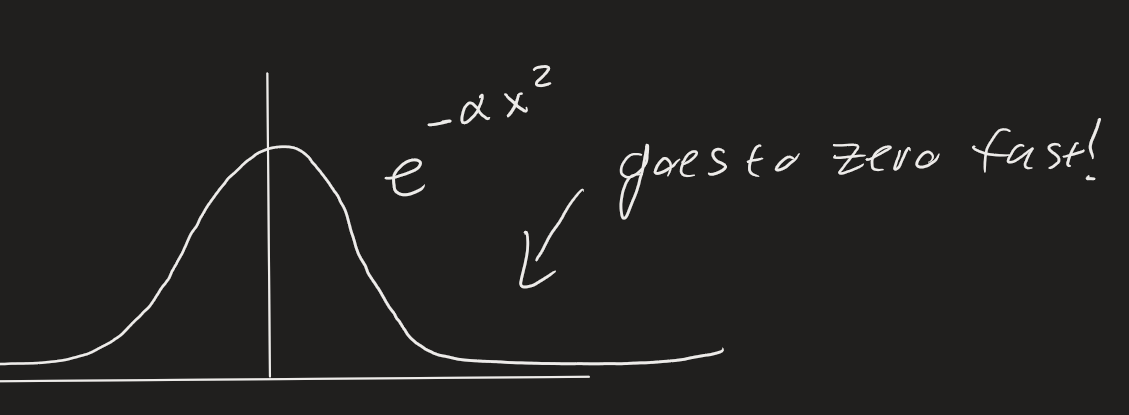 e^{-αx^2}
goes to zero fast!